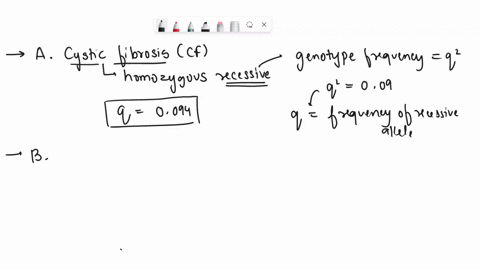 → A. Cystic fibrosis (CF)
↳ homozygous recessive
q = 0.094
genotype frequency = q²
q² = 0.09
q = frequency of recessive
allele
→ B.